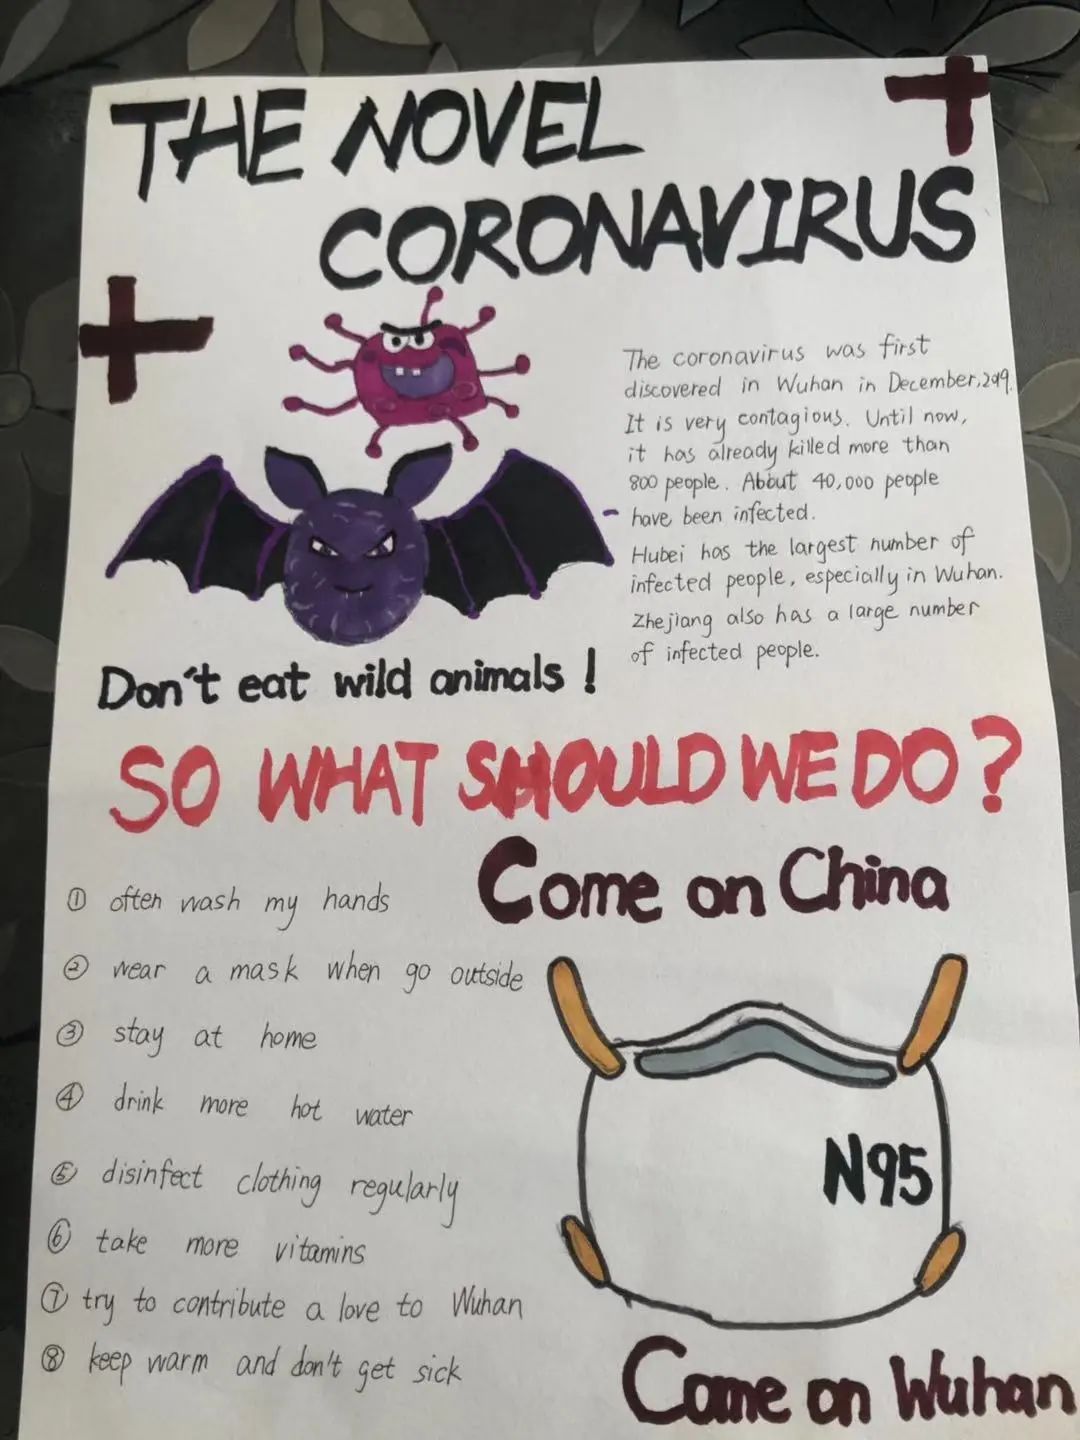 THE NOVEL
CORONAVIRUS
The coronavirus was first
discovered in Wuhan in December,2019.
It is very contagious. Until now,
it has already killed more than
800 people. About 40,000 people
have been infected.
Hubei has the largest number of
infected people, especially in Wuhan.
Zhejiang also has a large number
of infected people.
Don't eat wild animals!
SO WHAT SHOULD WE DO?
Come on China
① often wash my hands
② wear a mask when go outside
③ stay at home
④ drink more hot water
⑤ disinfect clothing regularly
⑥ take more vitamins
⑦ try to contribute a love to Wuhan
⑧ keep warm and don't get sick
N95
Come on Wuhan